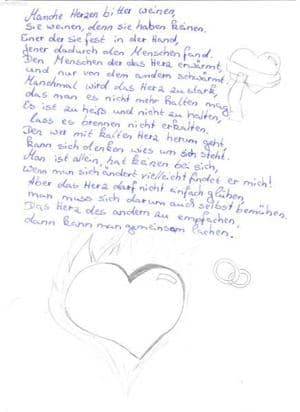 Manche Herzen bitter weinen,
sie weinen, denn sie haben keinen.
Einer der sie fest in der Hand,
Jener dadurch den Menschen fand.
Den Menschen der das Herz erwärmt,
und nur von dem andern schwärmt.
Manchmal wird das Herz zu stark,
das man es nicht mehr halten mag.
Es ist zu heiß und nicht zu halten,
lass es brennen nicht erkalten.
Den wer mit kalten Herz herum geht,
kann sich denken wies um sich steht.
Man ist allein, hat keinen bei sich,
Wenn man sich ändert vielleicht findet er mich!
Aber das Herz darf nicht einfach glühen,
man muss sich darum auch selbst bemühen.
Das Herz des andern zu empfachen
dann kann man gemeinsam lachen!